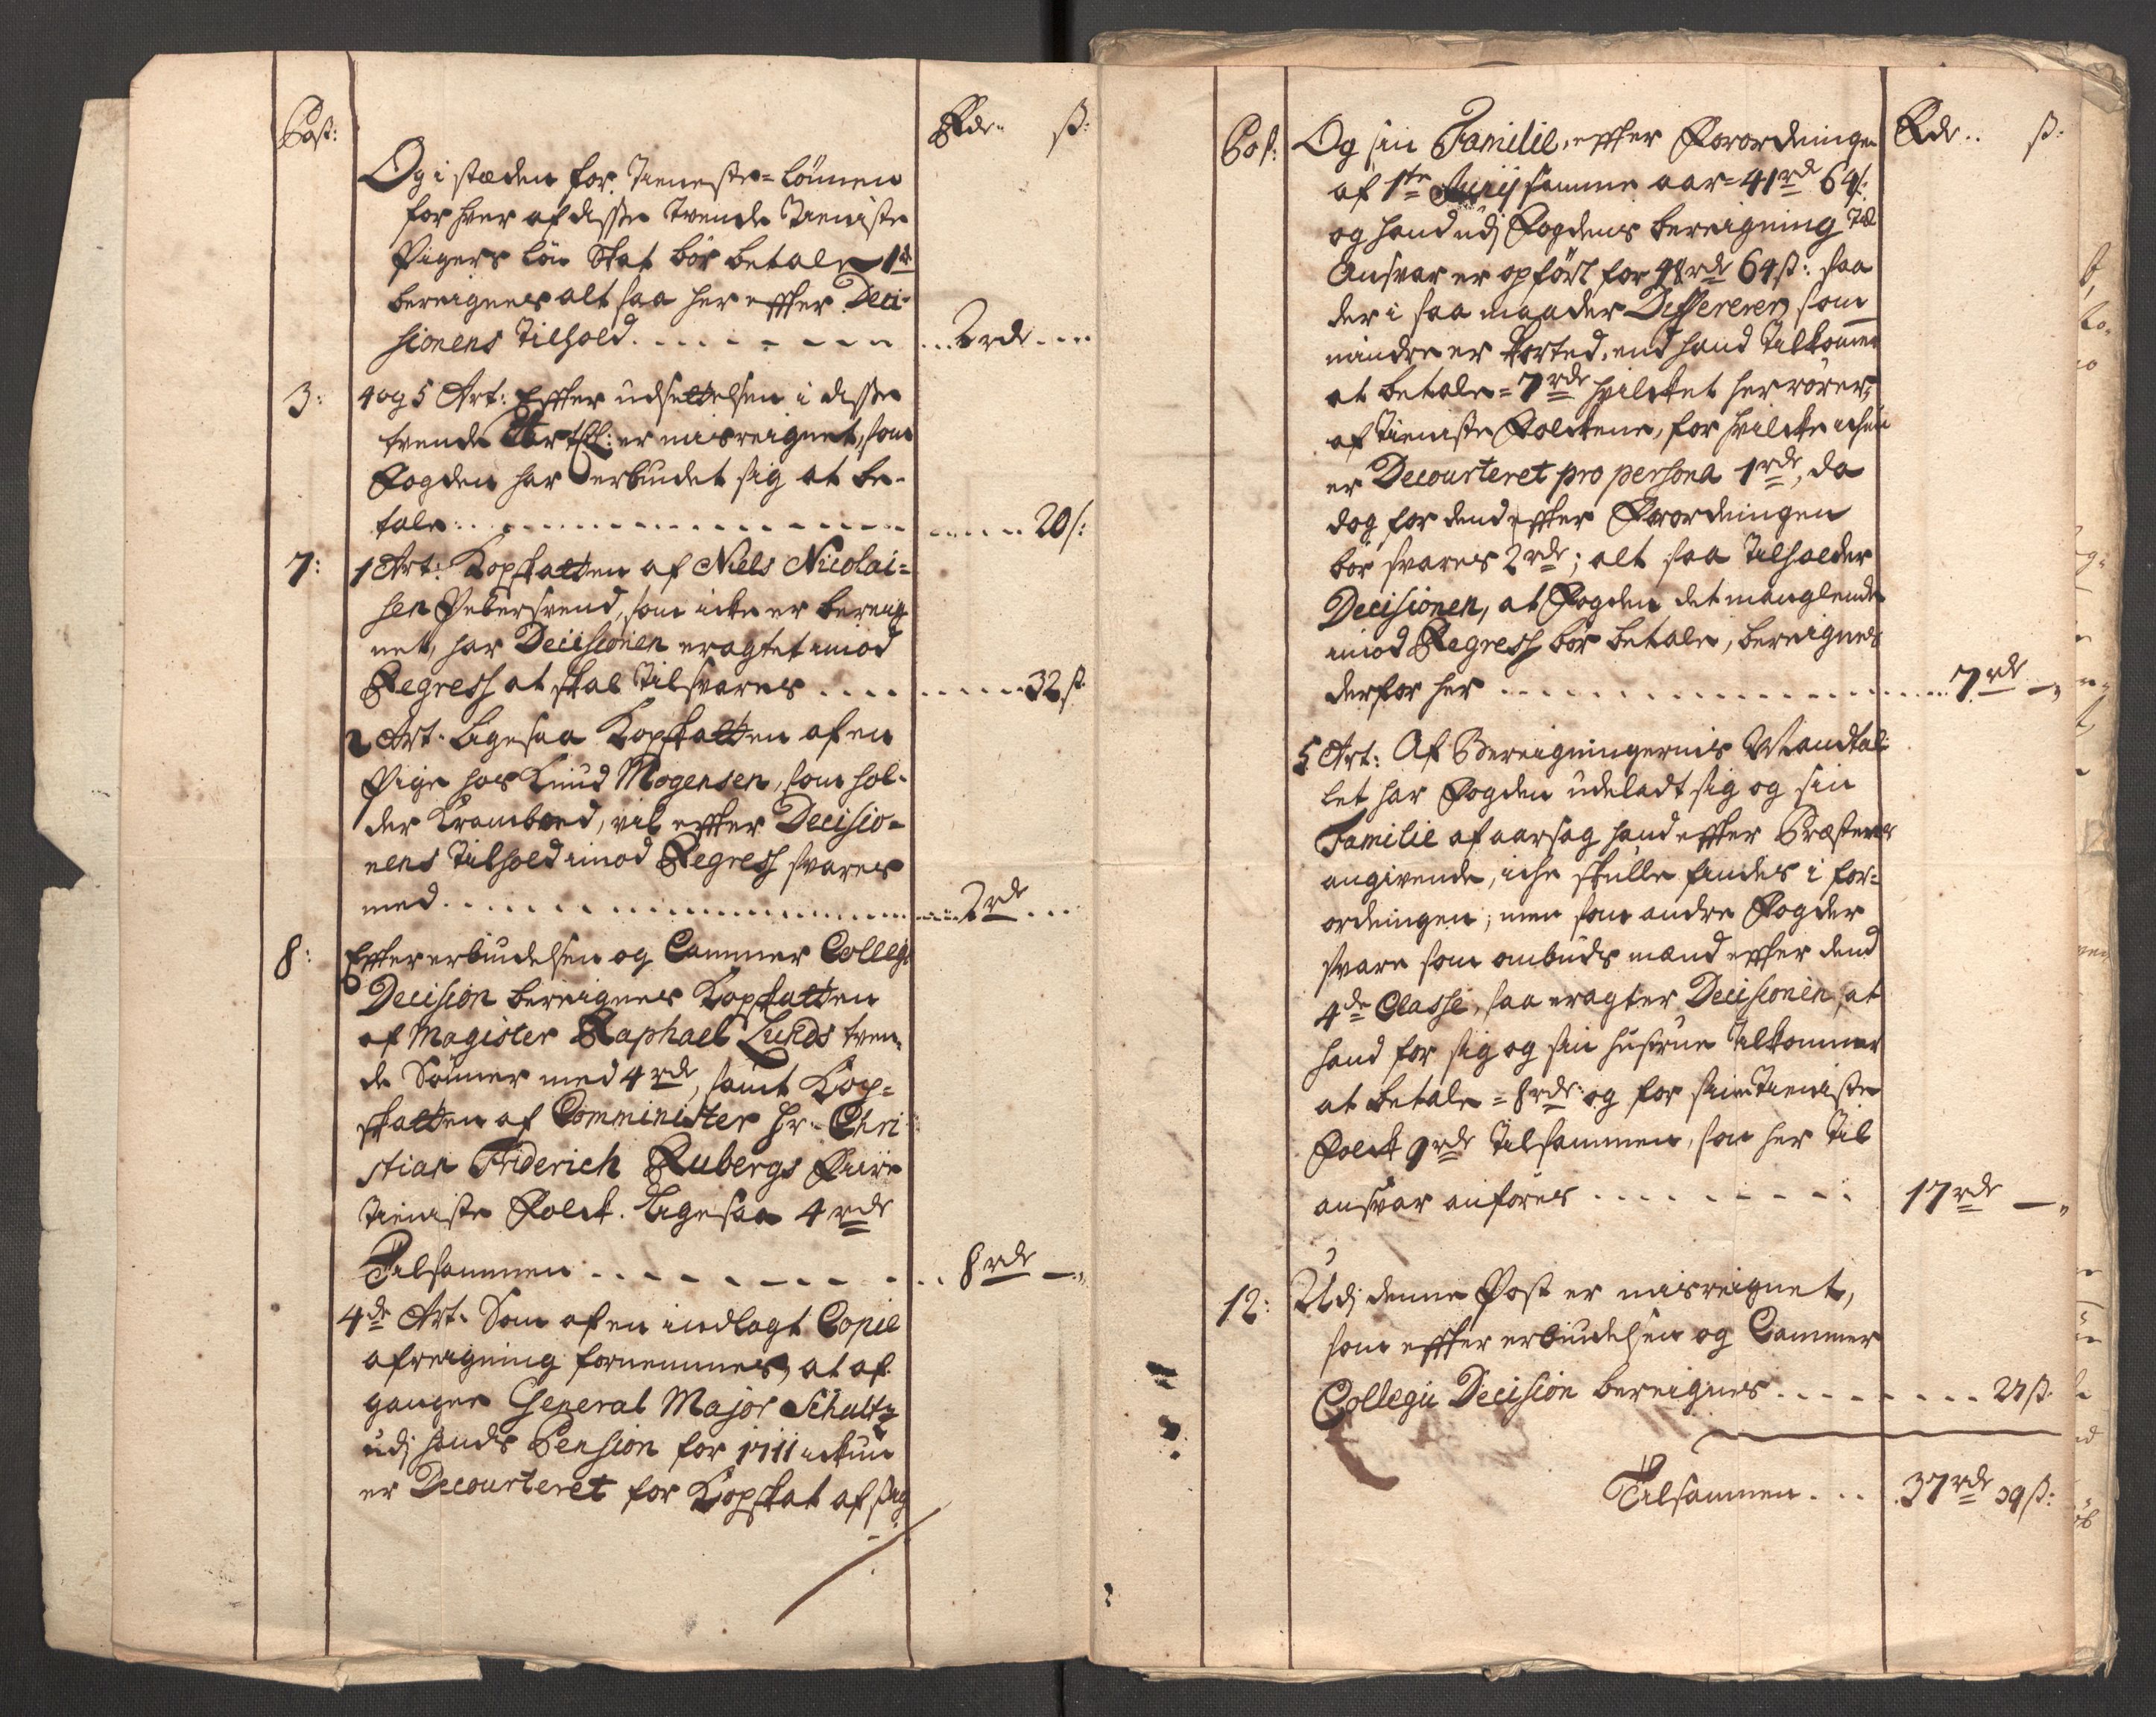 Post: Rdr. ß:
Og i stæden for Tieneste-Lönnen
for hver af disse tvende Tieniste
Pigers Lön Skat bör betale 1rd
bereignes alt saa her effter Deci-
sionens Tilhold. . . . . 2 rdr . . .
3: 4 og 5 Art: Effter udsettelsen i disse
tvende Artl: er misreignet, som
Fogden har erbudet sig at be-
tale . . . . . . 20 ß:
7: 1 Art: Kopskatten af Niels Nicolai-
sen Pebersvend, som icke er bereig
net, har Decisionen eragtet imod
Regress at skal Tilsvares . . . . . 32 ß
2 Art. Ligesaa Kopskatten af en
Pige hos Knud Mogensen, som hol-
der Krambod, vil effter Decisio-
nens Tilhold imod Regress svares
med . . . . . . 2 rdr . . .
8: Effter erbudelsen og Cammer Collegii
Decision bereignes Kopskatten
af Magister Raphael Lunds tven-
de Sönner med 4 rdr, samt Kop-
skatten af Comminister Hr. Chri-
stian Friderich Rubergs Fiire
tieniste Folck. Ligesaa 4 rdr
Tilsammen . . . . . . 8 rdr —„
4de Art. Som af en indlagt Copie
afreigning fornemmes, at af-
gangen General Major Schultz
udj hands Pension for 1711 ickun
er Decourteret for Kopskat af sig
Post: Rdr. . ß:
Og sin Familie, effter Forordningen
af 1te Junij samme aar = 41rd 64ß:
og hand udj Fogdens bereigning til
Ansvar er opfört for 48rdr 64ß: saa
der i saa maader Differerer, som
mindre er kortet, end hand Tilkommer
at betale = 7rdr hvilcket herrörer
af Tieniste Folckene, for hvilcke ichun
er Decourteret pro persona 1rdr, da
dog for dend effter Forordningen
bör svares 2rdr; alt saa Tilholder
Decisionen, at Fogden det manglende
imod Regress bör betale, bereignes
derfor her . . . . . . 7 rdr —„
5 Art: Af Bereigningernis Mandtal-
let har Fogden udeladt sig og sin
Familie af aarsag hand effter Præstens
angivende, iche skulle findes i for-
ordningen; men som andre Fogder
svare som ombuds mænd effter dend
4de Classe, saa eragter Decisionen, at
hand for sig og sin hustrue Tilkommer
at betale = 8rdr og for sine Tieniste
Folck 9rdr Tilsammen, som her til
ansvar anföres . . . . . . 17 rdr —„
12: Udj denne Post er misreignet,
som effter erbudelsen og Cammer
Collegii Decision bereignes . . . . . . 27 ß.
Tilsammen . . . 37 rdr 39 ß: